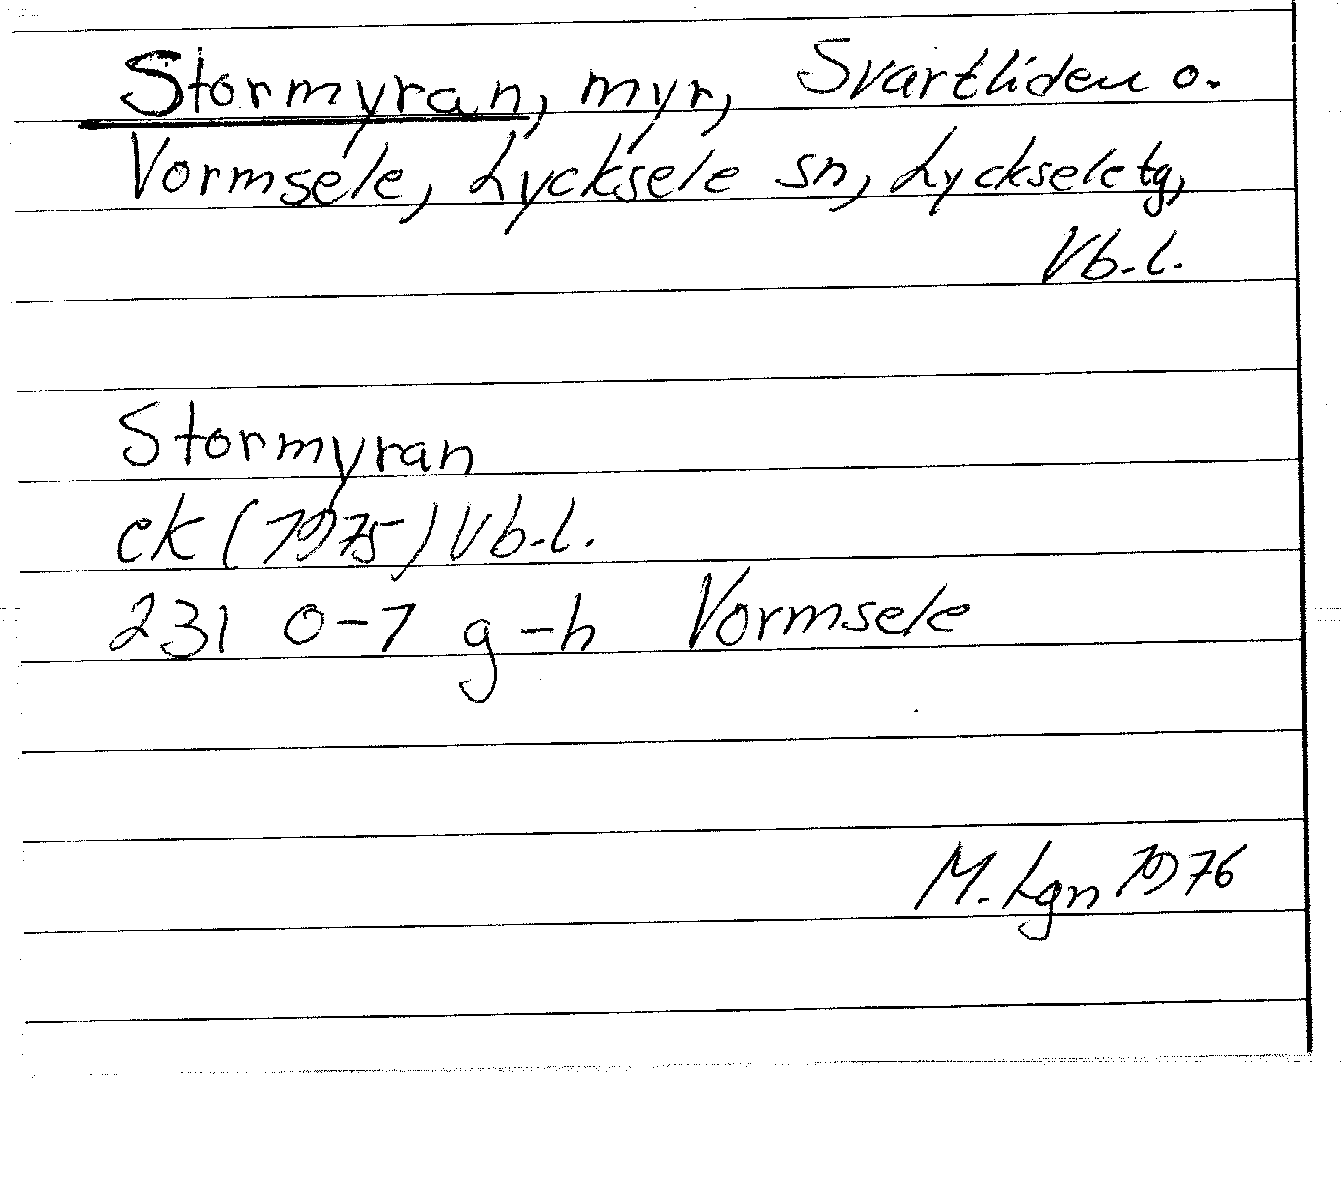 Stormyran, myr, Svartliden o.
Vormsele, Lycksele sn, Lycksele tg,
Vb.l.
Stormyran
ek (1975) Vb.l.
231 0-7 g-h Vormsele
M. Lgn 1976